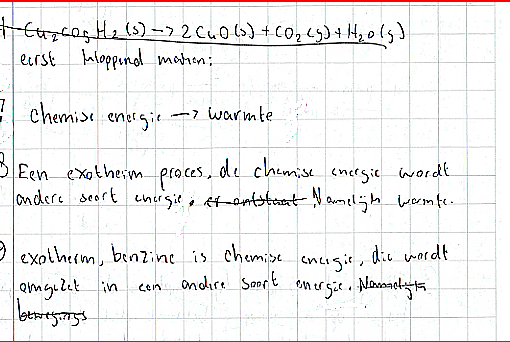 Cu2CO5H2(s) -> 2CuO(s) + CO2(g) + H2O(g)
eerst kloppend maken:
7 Chemise energie -> warmte
8 Een exotherm proces, de chemise energie wordt
andere soort energie, er ontstaat Namelijk warmte.
9 exotherm, benzine is chemise energie, die wordt
omgezet in een andere soort energie. Namelijk
bewegings